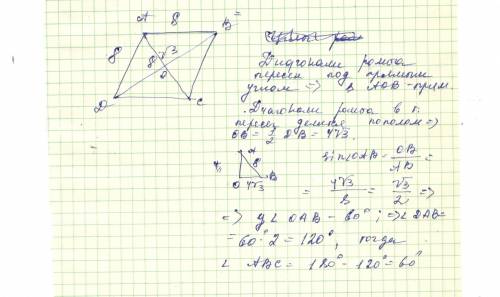 A 8 B
8 8√3
O
D C
Диагонали ромба
пересек под прямым
углом => Δ AOB - прям.
Диагонали ромба в т.
перес делятся пополам =>
OB = 1/2 DB = 4√3.
A
4 8 B
O 4√3
sin∠OAB = OB/AB =
= 4√3/8 = √3/2 =>
=> ∠OAB = 60°; => ∠DAB =
= 60·2 = 120°, тогда
∠ ABC = 180° - 120° = 60°